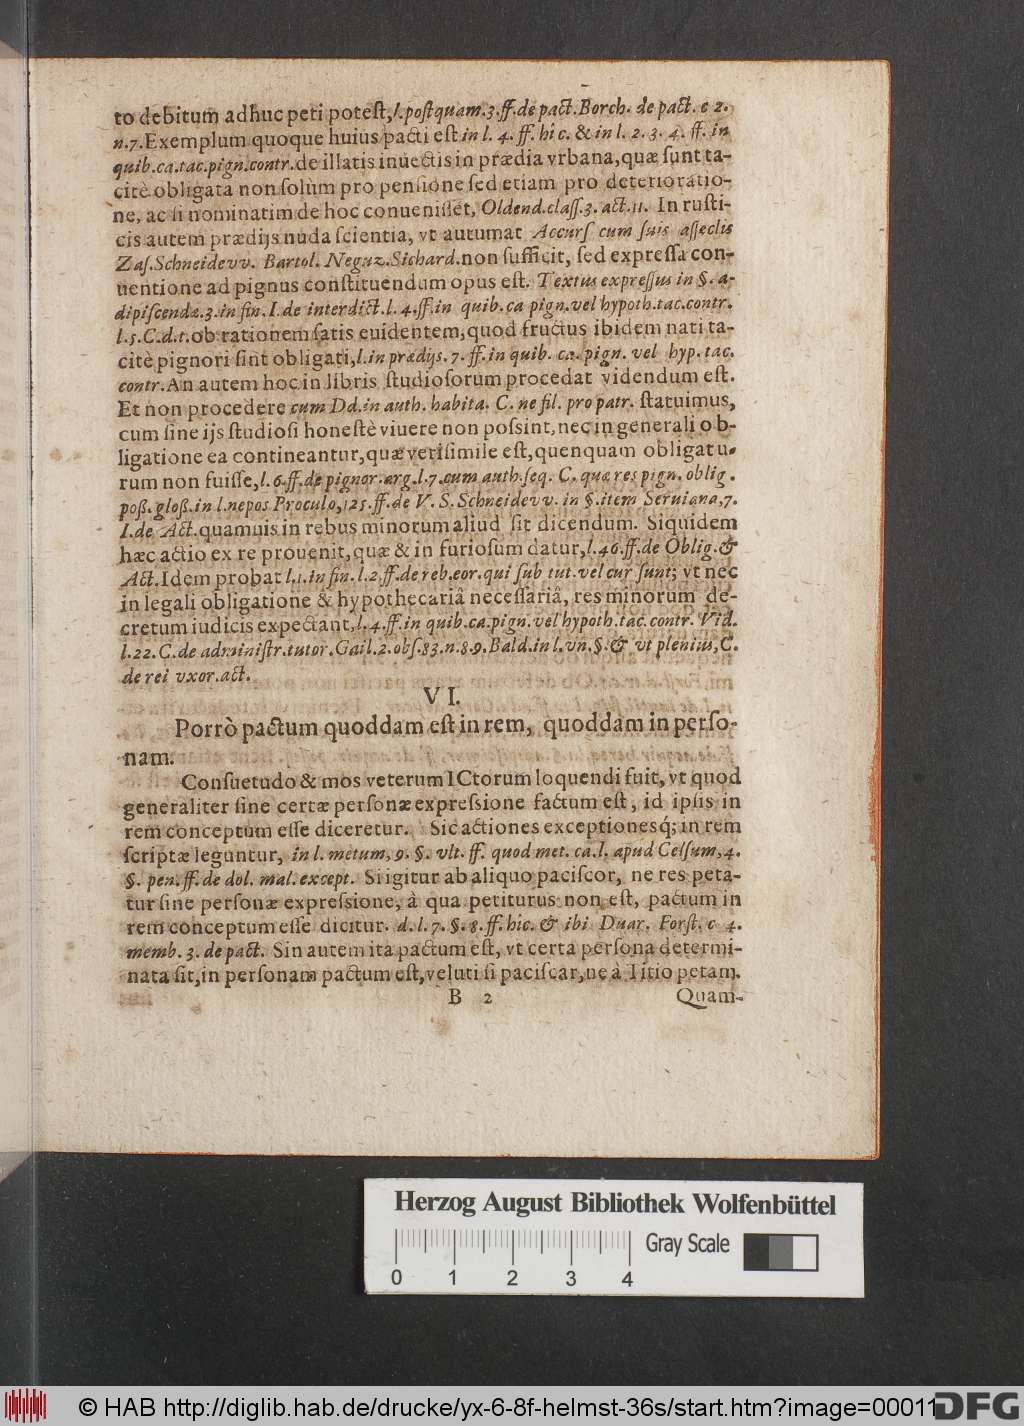 to debitum adhuc peti poteſt, l. poſtquam. 3. ff. de pact. Borch. de pact. c 2.
n. 7. Exemplum quoque huius pacti eſt in l. 4. ff. hic. & in l. 2. 3. 4. ff. in
quib. ca. tac. pign. contr. de illatis inuectis in prædia vrbana, quæ ſunt ta-
citè obligata non ſolùm pro penſione ſed etiam pro deterioratio-
ne, ac ſi nominatim de hoc conueniſſet, Oldend. claſſ. 3. act. 11. In ruſti-
cis autem prædijs nuda ſcientia, vt autumat Accurſ cum ſuis aſſeclis
Zaſ. Schneidevv. Bartol. Neguz. Sichard. non ſufficit, ſed expreſſa con-
uentione ad pignus conſtituendum opus eſt. Textus expreſſus in §. a-
dipiſcendæ. 3. in fin. I. de interdict. l. 4. ff. in quib. ca pign. vel hypoth. tac. contr.
l. 5. C. d. t. ob rationem ſatis euidentem, quod fructus ibidem nati ta-
citè pignori ſint obligati, l. in prædijs. 7. ff. in quib. ca. pign. vel hyp. tac.
contr. An autem hoc in libris ſtudioſorum procedat videndum eſt.
Et non procedere cum Dd. in auth. habita. C. ne fil. pro patr. ſtatuimus,
cum ſine ijs ſtudioſi honeſtè viuere non poſsint, nec in generali ob-
ligatione ea contineantur, quæ veriſimile eſt, quenquam obligatu-
rum non fuiſſe, l. 6. ff. de pignor. arg. l. 7. cum auth. ſeq. C. quæ res pign. oblig.
poß. gloß. in l. nepos Proculo, 125. ff. de V. S. Schneidevv. in §. item Seruiana, 7.
I. de Act. quamuis in rebus minorum aliud ſit dicendum. Siquidem
hæc actio ex re prouenit, quæ & in furioſum datur, l. 46. ff. de Oblig. &
Act. Idem probat l. 1. in fin. l. 2. ff. de reb. eor. qui ſub tut. vel cur ſunt; vt nec
in legali obligatione & hypothecariâ neceſſariâ, res minorum de-
cretum iudicis expectant, l. 4. ff. in quib. ca. pign. vel hypoth. tac. contr. Vid.
l. 22. C. de adminiſtr. tutor. Gail. 2. obſ. 83. n. 8. 9. Bald. in l. vn. §. & vt plenius, C.
de rei vxor. act.
VI.
Porrò pactum quoddam eſt in rem, quoddam in perſo-
nam.
Conſuetudo & mos veterum ICtorum loquendi fuit, vt quod
generaliter ſine certæ perſonæ expreſsione factum eſt, id ipſis in
rem conceptum eſſe diceretur. Sic actiones exceptionesq́; in rem
ſcriptæ leguntur, in l. metum, 9. §. vlt. ff. quod met. ca. l. apud Celſum, 4.
§. pen. ff. de dol. mal. except. Si igitur ab aliquo paciſcor, ne res peta-
tur ſine perſonæ expreſsione, à qua petiturus non eſt, pactum in
rem conceptum eſſe dicitur. d. l. 7. §. 8. ff. hic. & ibi Duar. Forſt. c 4.
memb. 3. de pact. Sin autem ita pactum eſt, vt certa perſona determi-
nata ſit, in perſonam pactum eſt, veluti ſi paciſcar, ne à Titio petam.
B 2 Quam-
Herzog August Bibliothek Wolfenbüttel
Gray Scale
0 1 2 3 4
© HAB http://diglib.hab.de/drucke/yx-6-8f-helmst-36s/start.htm?image=00011
DFG